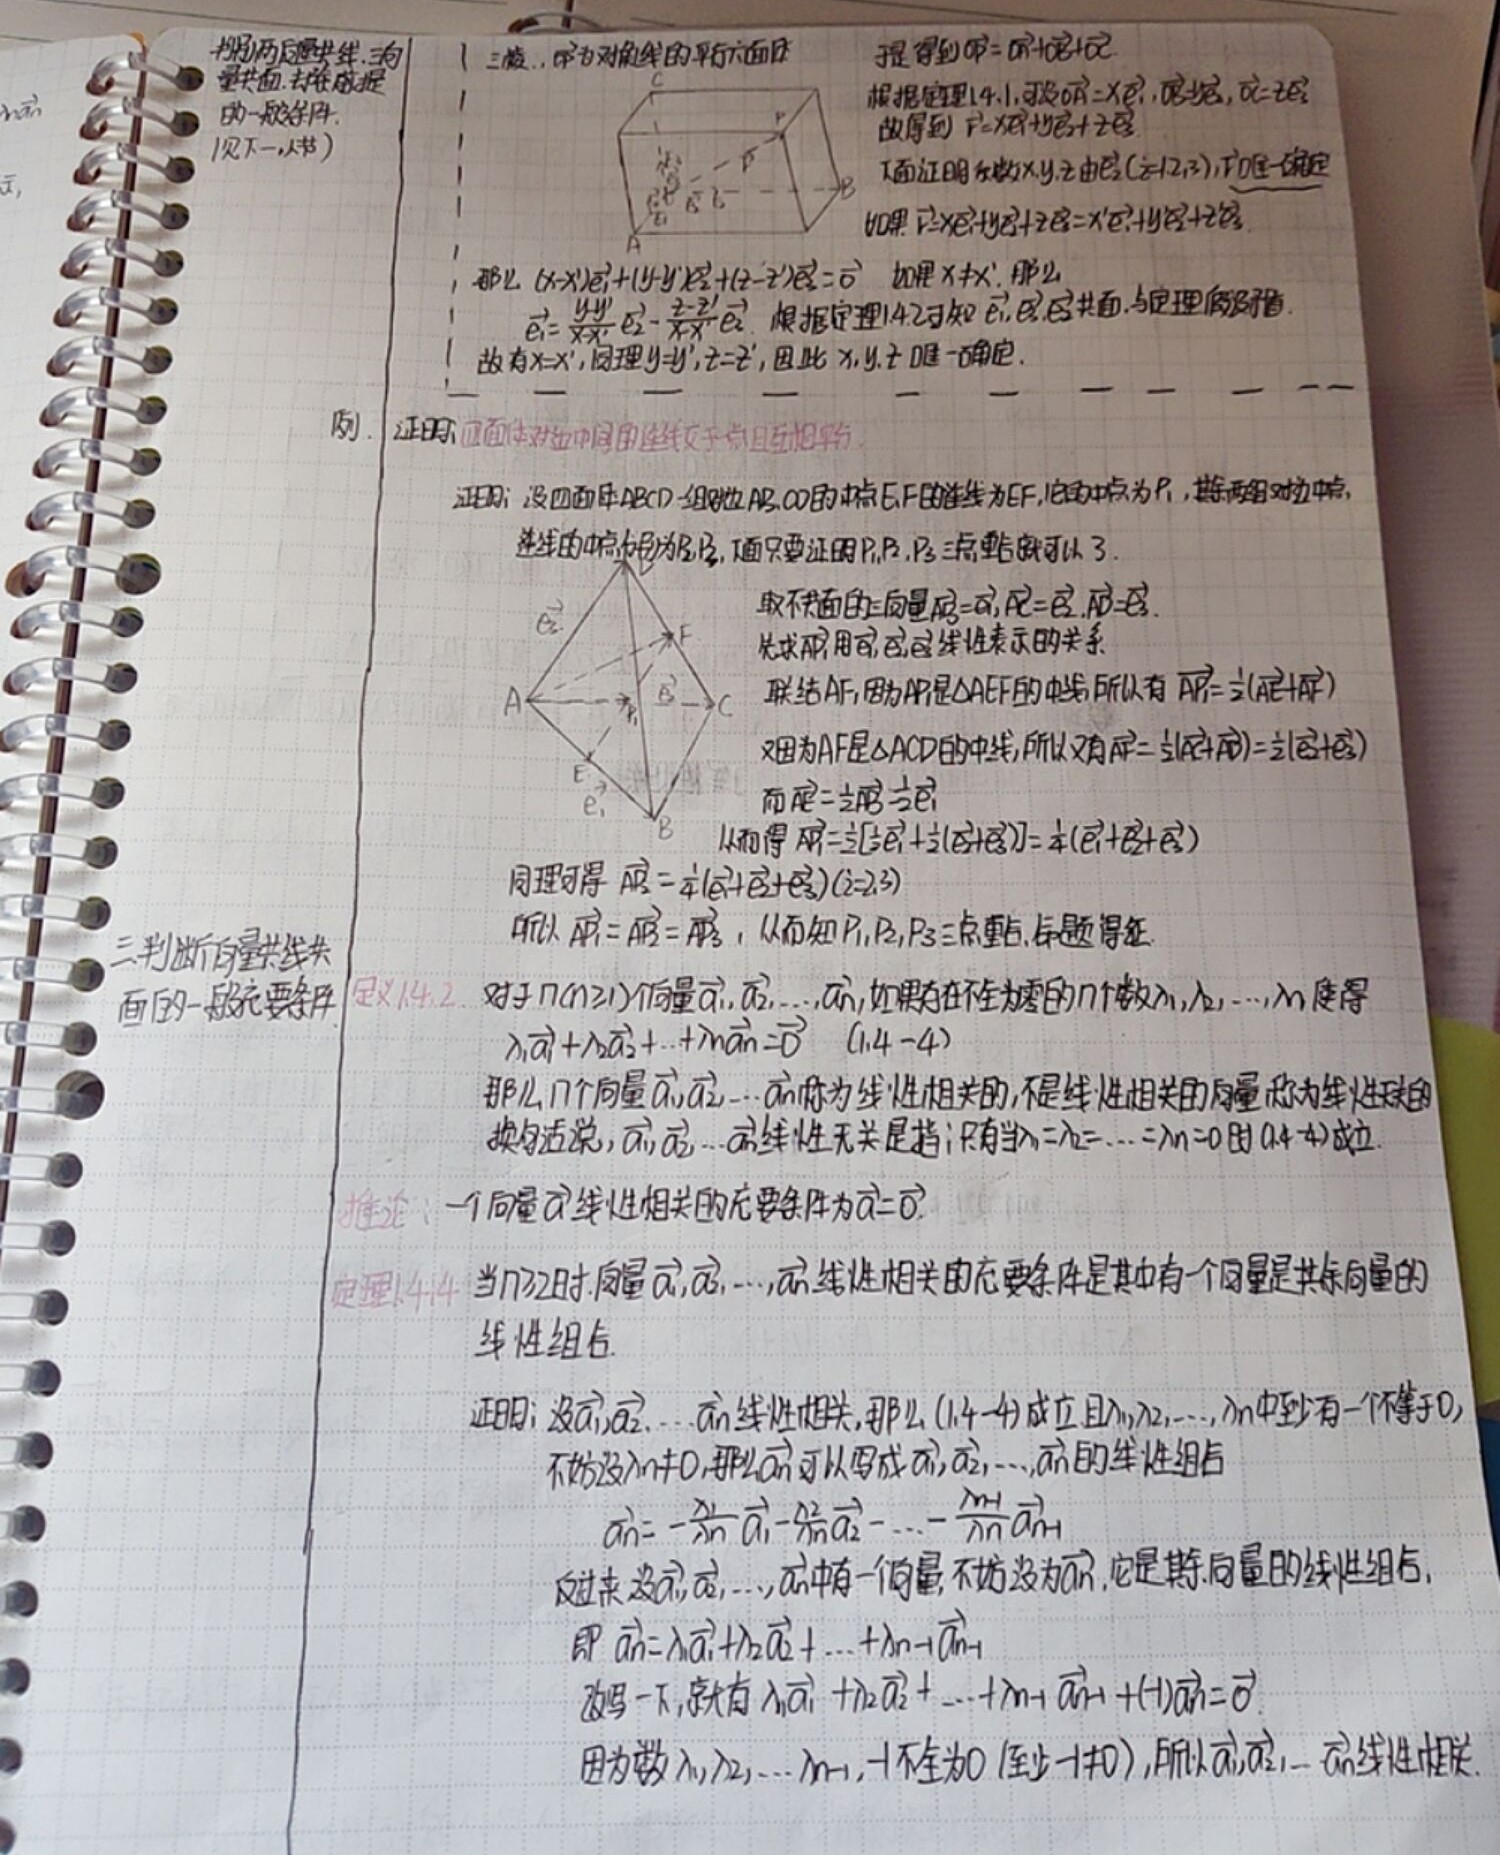 判别两向量共线.三向
量共面.去推广
的一般条件.
(见下一小节)
三棱..OP为对角线的平行六面体
C
P
B
A
于是得到OP⃗=OA⃗+OB⃗+OC⃗
根据定理1.4.1,可设OA⃗=xe₁⃗,OB⃗=ye₂⃗,OC⃗=ze₃⃗
故得到 r⃗=xe₁⃗+ye₂⃗+ze₃⃗
下面证明系数x.y.z由e⃗ᵢ(i=1.2,3),r⃗唯一确定
如果 r⃗=xe₁⃗+ye₂⃗+ze₃⃗=x'e₁⃗+y'e₂⃗+z'e₃⃗
那么 (x-x')e₁⃗+(y-y')e₂⃗+(z-z')e₃⃗=0⃗ 如果x≠x',那么
e₁⃗=-(y-y')/(x-x') e₂⃗-(z-z')/(x-x') e₃⃗. 根据定理1.4.2可知 e₁⃗,e₂⃗,e₃⃗共面.与定理假设矛盾.
故有x=x',同理y=y',z=z',因此 x,y.z 唯一确定.
例. 证明:四面体对边中点的连线交于一点且互相平分.
证明:设四面体ABCD一组对边AB.CD的中点E,F的连线为EF,它的中点为P₁,其余两组对边中点,
连线的中点分别为P₂P₃,下面只要证明P₁,P₂,P₃三点重合就可以了.
D
e₃⃗
F
A
P₁
e₂⃗
C
E
e₁⃗
B
取不共面的三向量AB⃗=e₁⃗,AC⃗=e₂⃗.AD⃗=e₃⃗.
先求AP₁⃗用e₁⃗,e₂⃗,e₃⃗线性表示的关系.
联结AF,因为AP₁是△AEF的中线,所以有 AP₁⃗=½(AE⃗+AF⃗)
又因为AF是△ACD的中线,所以又有AF⃗=½(AC⃗+AD⃗)=½(e₂⃗+e₃⃗)
而AE⃗=½AB⃗=½e₁⃗
从而得 AP₁⃗=½[½e₁⃗+½(e₂⃗+e₃⃗)]=¼(e₁⃗+e₂⃗+e₃⃗)
同理可得 APᵢ⃗=¼(e₁⃗+e₂⃗+e₃⃗)(i=2,3)
所以 AP₁⃗=AP₂⃗=AP₃⃗,从而知P₁,P₂,P₃三点重合.命题得证.
三.判断向量共线共
面的一般充要条件.
定义1.4.2. 对于n(n≥1)个向量a₁⃗,a₂⃗,...,aₙ⃗,如果存在不全为零的n个数λ₁,λ₂,...,λₙ使得
λ₁a₁⃗+λ₂a₂⃗+...+λₙaₙ⃗=0⃗ (1.4-4)
那么n个向量a₁⃗,a₂⃗,...aₙ⃗称为线性相关的,不是线性相关的向量称为线性无关的
换句话说,a₁⃗,a₂⃗,...aₙ⃗线性无关是指:只有当λ₁=λ₂=...=λₙ=0时(1.4-4)成立.
推论:一个向量a⃗线性相关的充要条件为a⃗=0⃗.
定理1.4.4 当n≥2时.向量a₁⃗,a₂⃗,...,aₙ⃗线性相关的充要条件是其中有一个向量是其余向量的
线性组合.
证明:设a₁⃗,a₂⃗....aₙ⃗线性相关,那么(1.4-4)成立且λ₁,λ₂,...,λₙ中至少有一个不等于0,
不妨设λₙ≠0,那么aₙ⃗可以写成a₁⃗,a₂⃗,...,aₙ⃗的线性组合
aₙ⃗=-λ₁/λₙ a₁⃗-λ₂/λₙ a₂⃗-...-λₙ₋₁/λₙ aₙ₋₁⃗
反过来 设a₁⃗,a₂⃗,...,aₙ⃗中有一个向量,不妨设为aₙ⃗,它是其余向量的线性组合,
即 aₙ⃗=λ₁a₁⃗+λ₂a₂⃗+...+λₙ₋₁aₙ₋₁⃗
改写一下,就有 λ₁a₁⃗+λ₂a₂⃗+...+λₙ₋₁aₙ₋₁⃗+(-1)aₙ⃗=0⃗.
因为数λ₁,λ₂,...λₙ₋₁,-1不全为0 (至少-1≠0),所以a₁⃗,a₂⃗,...aₙ⃗线性相关.